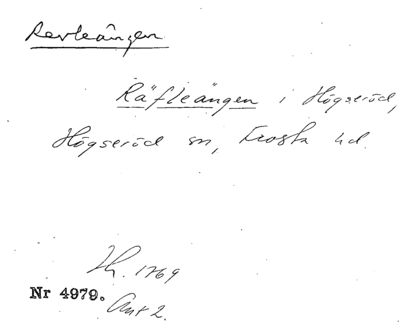 Revleängen
Räfleängen i Högseröd,
Högseröd sn, Frosta hd.
Lh. 1769
Nr 4979.
Akt 2.